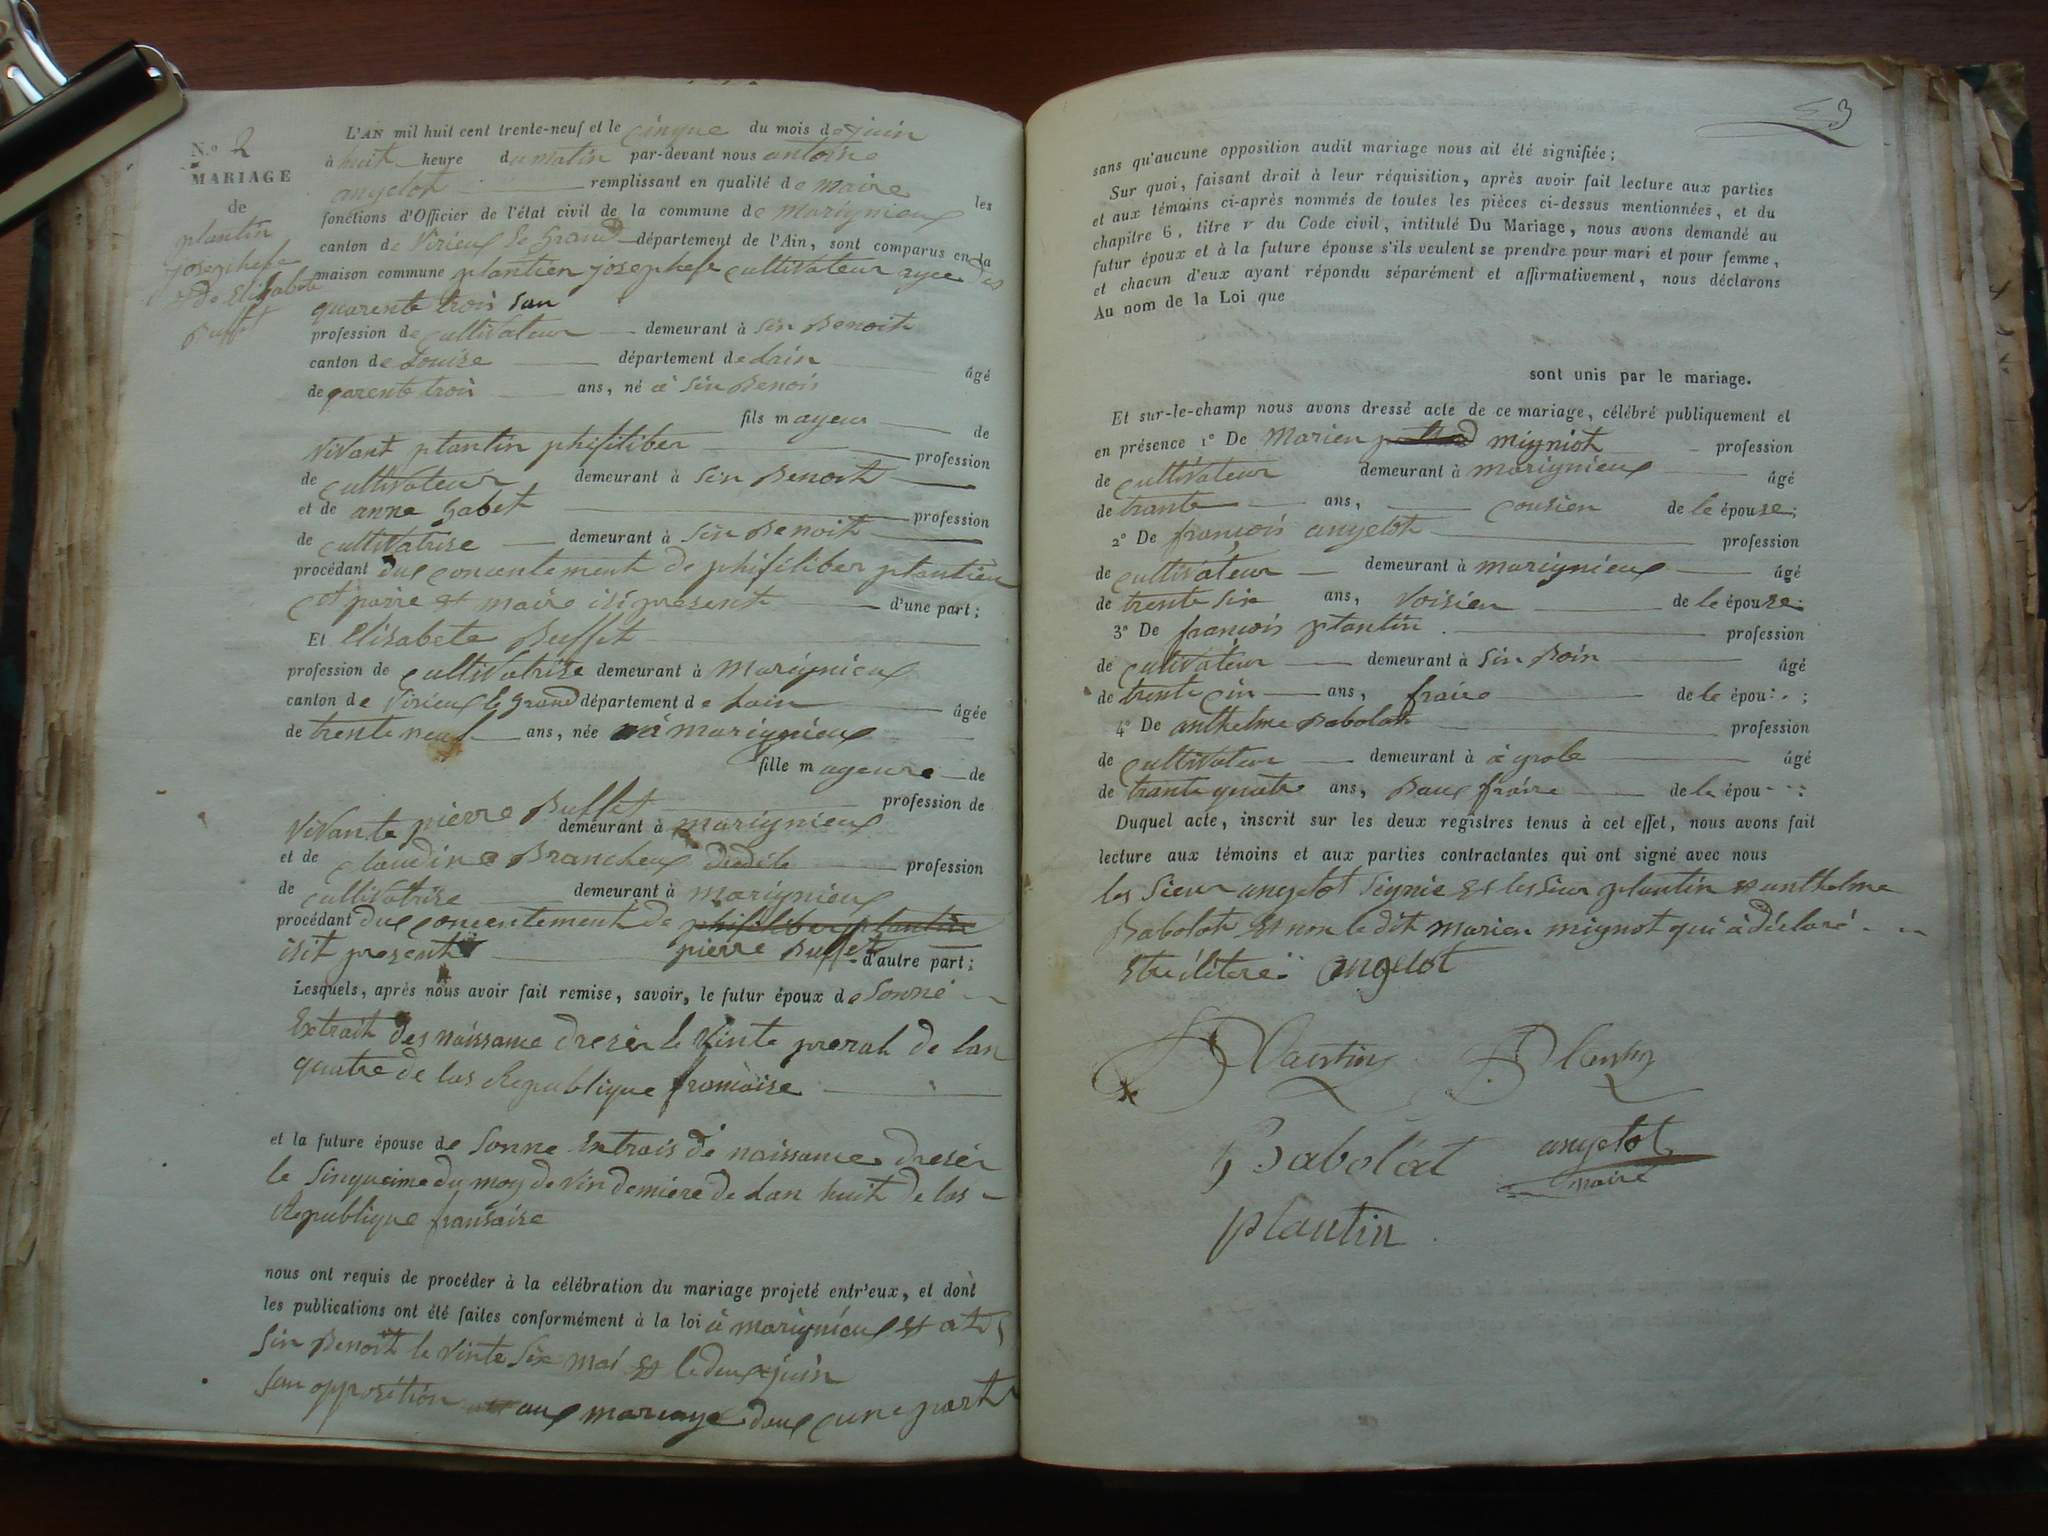 N.º 2
MARIAGE
de
plantin
josephefe
et de Elisabete
Buffet
L'AN mil huit cent trente-neuf et le cinque du mois de juin
à huit heure du matin par-devant nous antoine
angelot remplissant en qualité de maire les
fonctions d'Officier de l'état civil de la commune de marignieux
canton de Virieux le grand département de l'Ain, sont comparus en la
maison commune plantien josephefe cultivateur agee des
quarente trois san
profession de cultivateur demeurant à sin Benoit
canton de département de Lain âgé
de qarente trois ans, né à sin Benois
fils mayeur de
vivant plantin phifiliber profession
de cultivateur demeurant à sin Benoit
et de anne gabet profession
de cultivatrise demeurant à sin Benoit
procédant du concentement de phifiliber plantien
et paire et maire isi present d'une part;
Et Elisabete Buffet
profession de cultivatrise demeurant à marignieux
canton de Virieux le grand département de Lain âgée
de trente neuf ans, née à marignieux
fille mageure de
vivante pierre Buffet profession de
demeurant à marignieux
et de claudine Brancheux profession
de cultivatrise demeurant à marignieux
procédant du concentement de phifiliber plantin
isit present pierre Buffet d'autre part;
Lesquels, après nous avoir fait remise, savoir, le futur époux de sonne
Extrait des naissance dresér le vinte prerah de lan
quatre de las Republique francaise
et la future épouse de sonne Extrais de naissance dresér
le sinqueime du moy de vin demiere de Lan huit de las
Republique fransaise
nous ont requis de procéder à la célébration du mariage projeté entr'eux, et dont
les publications ont été faites conformément à la loi à marignieux et at
sin Benoit le vinte six mai et le deux juin
san opposition aux mariage daux cune part
sans qu'aucune opposition audit mariage nous ait été signifiée;
Sur quoi, faisant droit à leur réquisition, après avoir fait lecture aux parties
et aux témoins ci-après nommés de toutes les pièces ci-dessus mentionnées, et du
chapitre 6, titre v du Code civil, intitulé Du Mariage, nous avons demandé au
futur époux et à la future épouse s'ils veulent se prendre pour mari et pour femme,
et chacun d'eux ayant répondu séparément et affirmativement, nous déclarons
Au nom de la Loi que
sont unis par le mariage.
Et sur-le-champ nous avons dressé acte de ce mariage, célébré publiquement et
en présence 1º De Marien migniot profession
de cultivateur demeurant à marignieux âgé
de trante ans, cousien de le épouse;
2º De françois angelot profession
de cultivateur demeurant à marignieux âgé
de trente six ans, voisien de le épouse;
3º De françois plantin profession
de cultivateur demeurant à sin Boin âgé
de trente cin ans, fraire de le épou ;
4º De anthelme Babolat profession
de cultivateur demeurant à à yrole âgé
de trante quatre ans, Baux fraire de le épou ;
Duquel acte, inscrit sur les deux registres tenus à cet effet, nous avons fait
lecture aux témoins et aux parties contractantes qui ont signé avec nous
les sieur angelot signie et les sieur plantin et anthelme
Babolat et non le dit marien mignot qui à déclaré
angelot
Plantin Plantin
Babolat angelot
maire
plantin